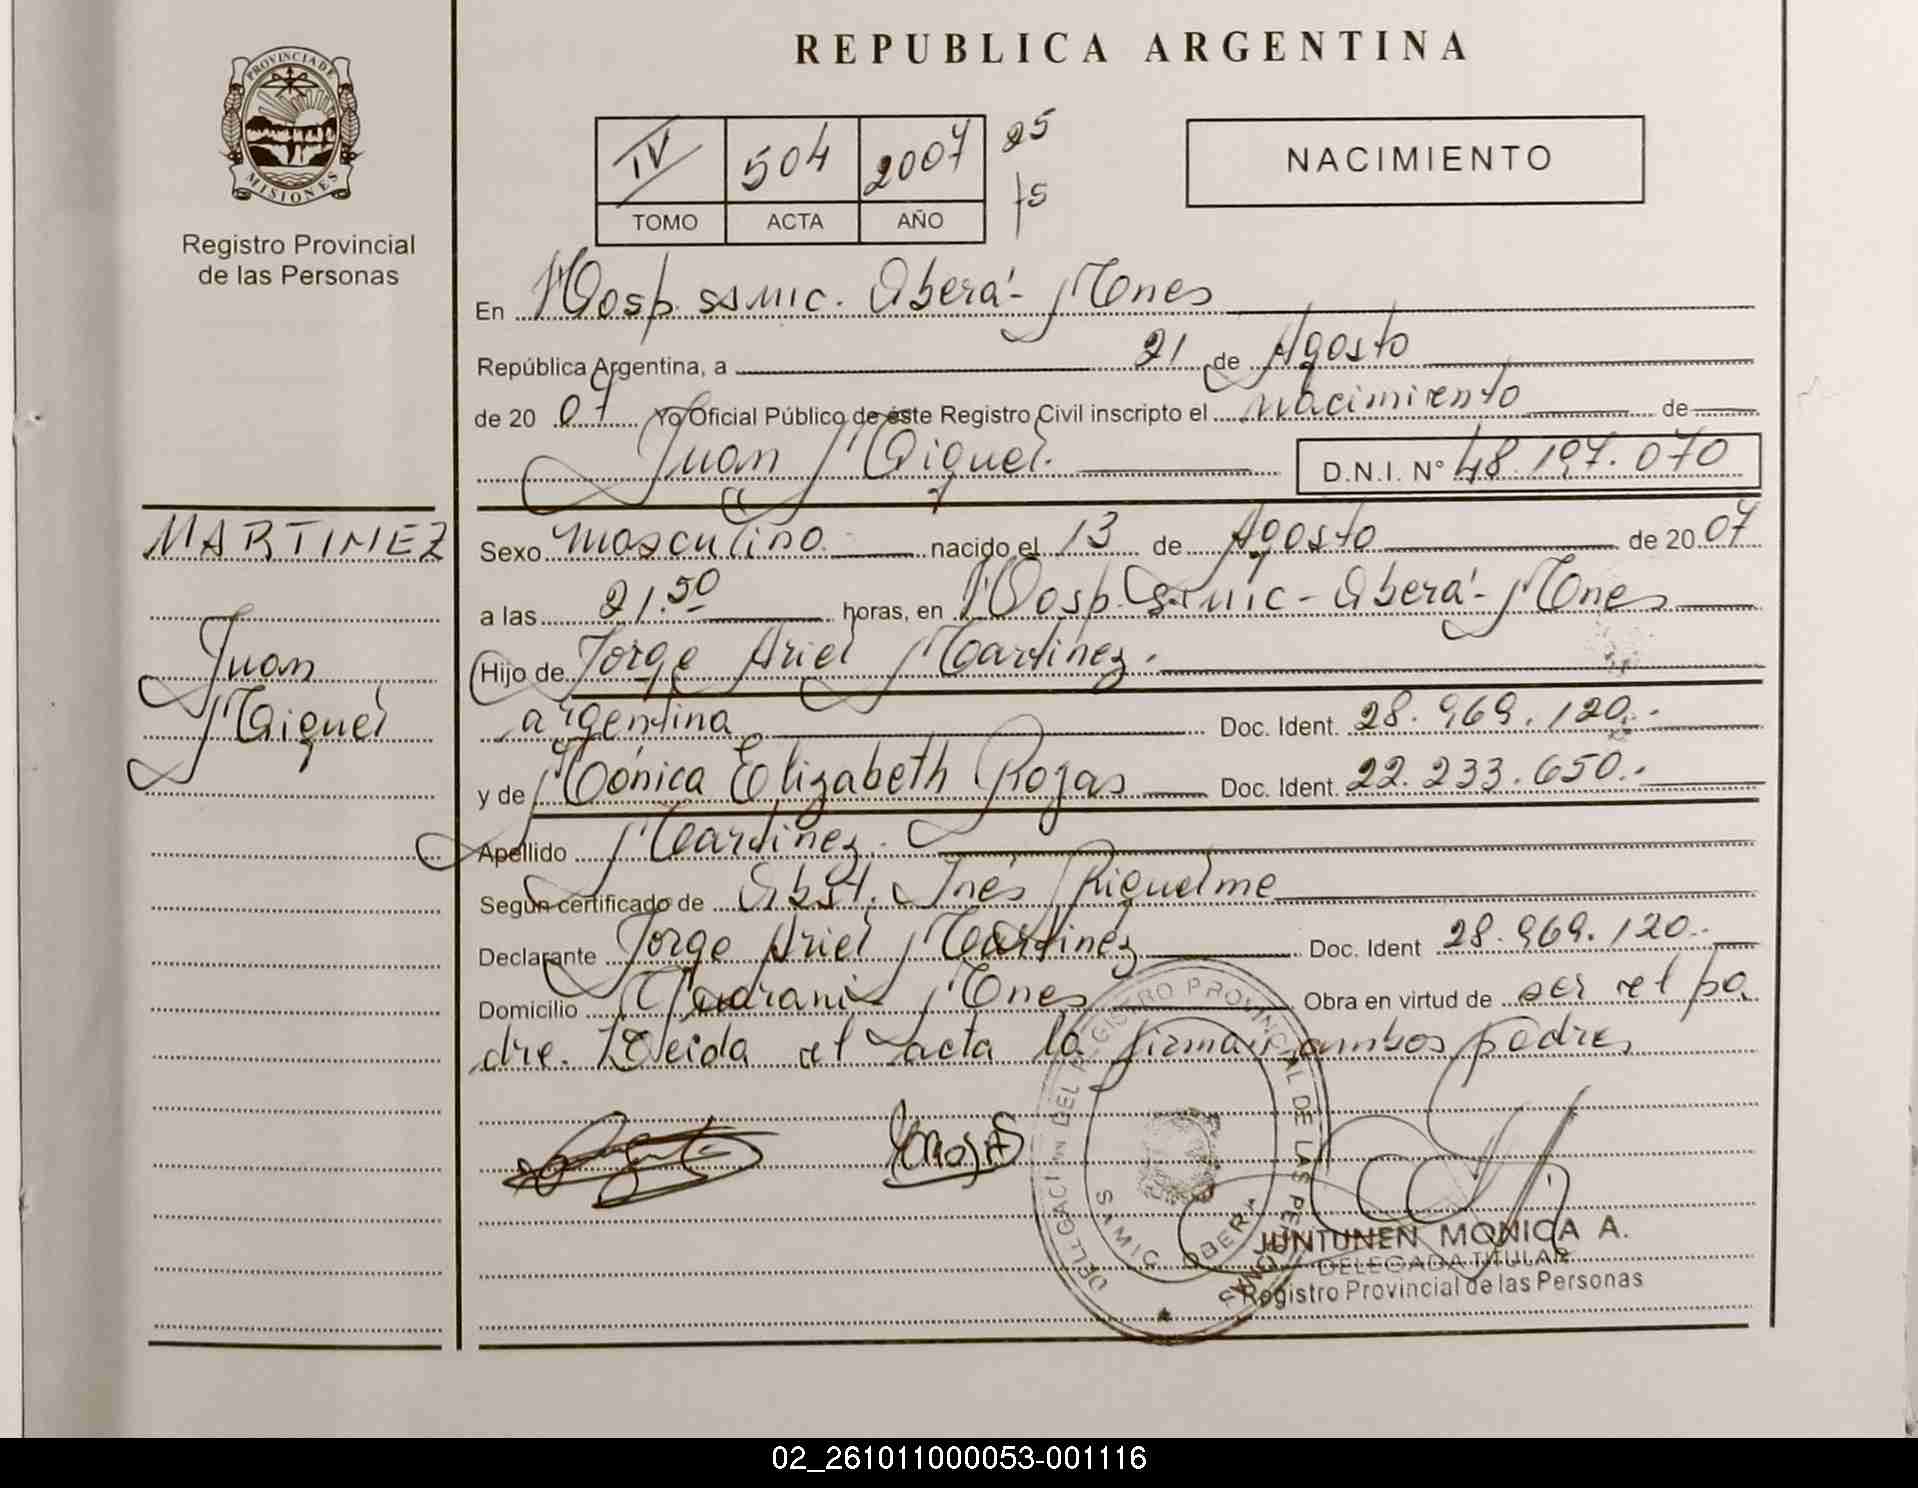 REPUBLICA ARGENTINA
PROVINCIA DE
MISIONES
Registro Provincial
de las Personas
IV 504 2007 25
TOMO ACTA AÑO 75
NACIMIENTO
En Hosp. SSMIC. Oberá - Mnes
República Argentina, a 21 de Agosto
de 20 07 Yo Oficial Público de éste Registro Civil inscripto el nacimiento de
Juan Miguel. D.N.I. N° 48.197.070
MARTINEZ
Juan
Miguel
Sexo masculino nacido el 13 de Agosto de 20 07
a las 21.50 horas, en Hosp. SSMIC - Oberá - Mnes
Hijo de Jorge Ariel Martinez.
argentina Doc. Ident. 28.969.120.-
y de Mónica Elizabeth Rojas Doc. Ident. 22.233.650.-
Apellido Martinez.
Según certificado de Obst. Inés Riquelme
Declarante Jorge Ariel Martinez Doc. Ident 28.969.120.-
Domicilio Guarani Mnes Obra en virtud de ser el pa
dre. Leida el acta la firman ambos padres
DELEGACION DEL REGISTRO PROVINCIAL DE LAS PERSONAS
OBERA
JUNTUNEN MONICA A.
DELEGADA TITULAR
Registro Provincial de las Personas
02_261011000053-001116